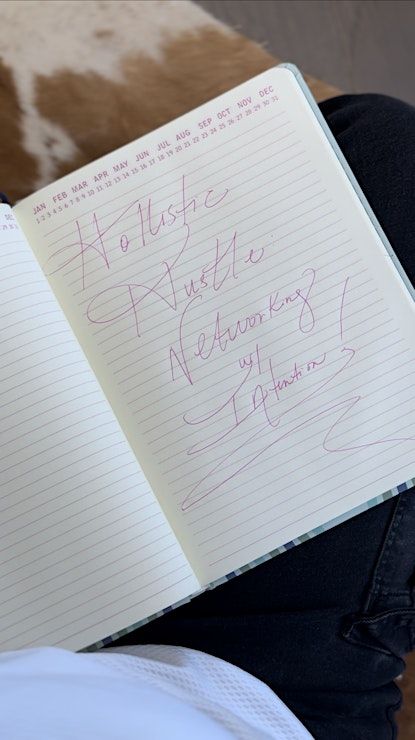 JAN FEB MAR APR MAY JUN JUL AUG SEP OCT NOV DEC
1 2 3 4 5 6 7 8 9 10 11 12 13 14 15 16 17 18 19 20 21 22 23 24 25 26 27 28 29 30 31
Hollistic
Hustle
Networking
w/
Intention